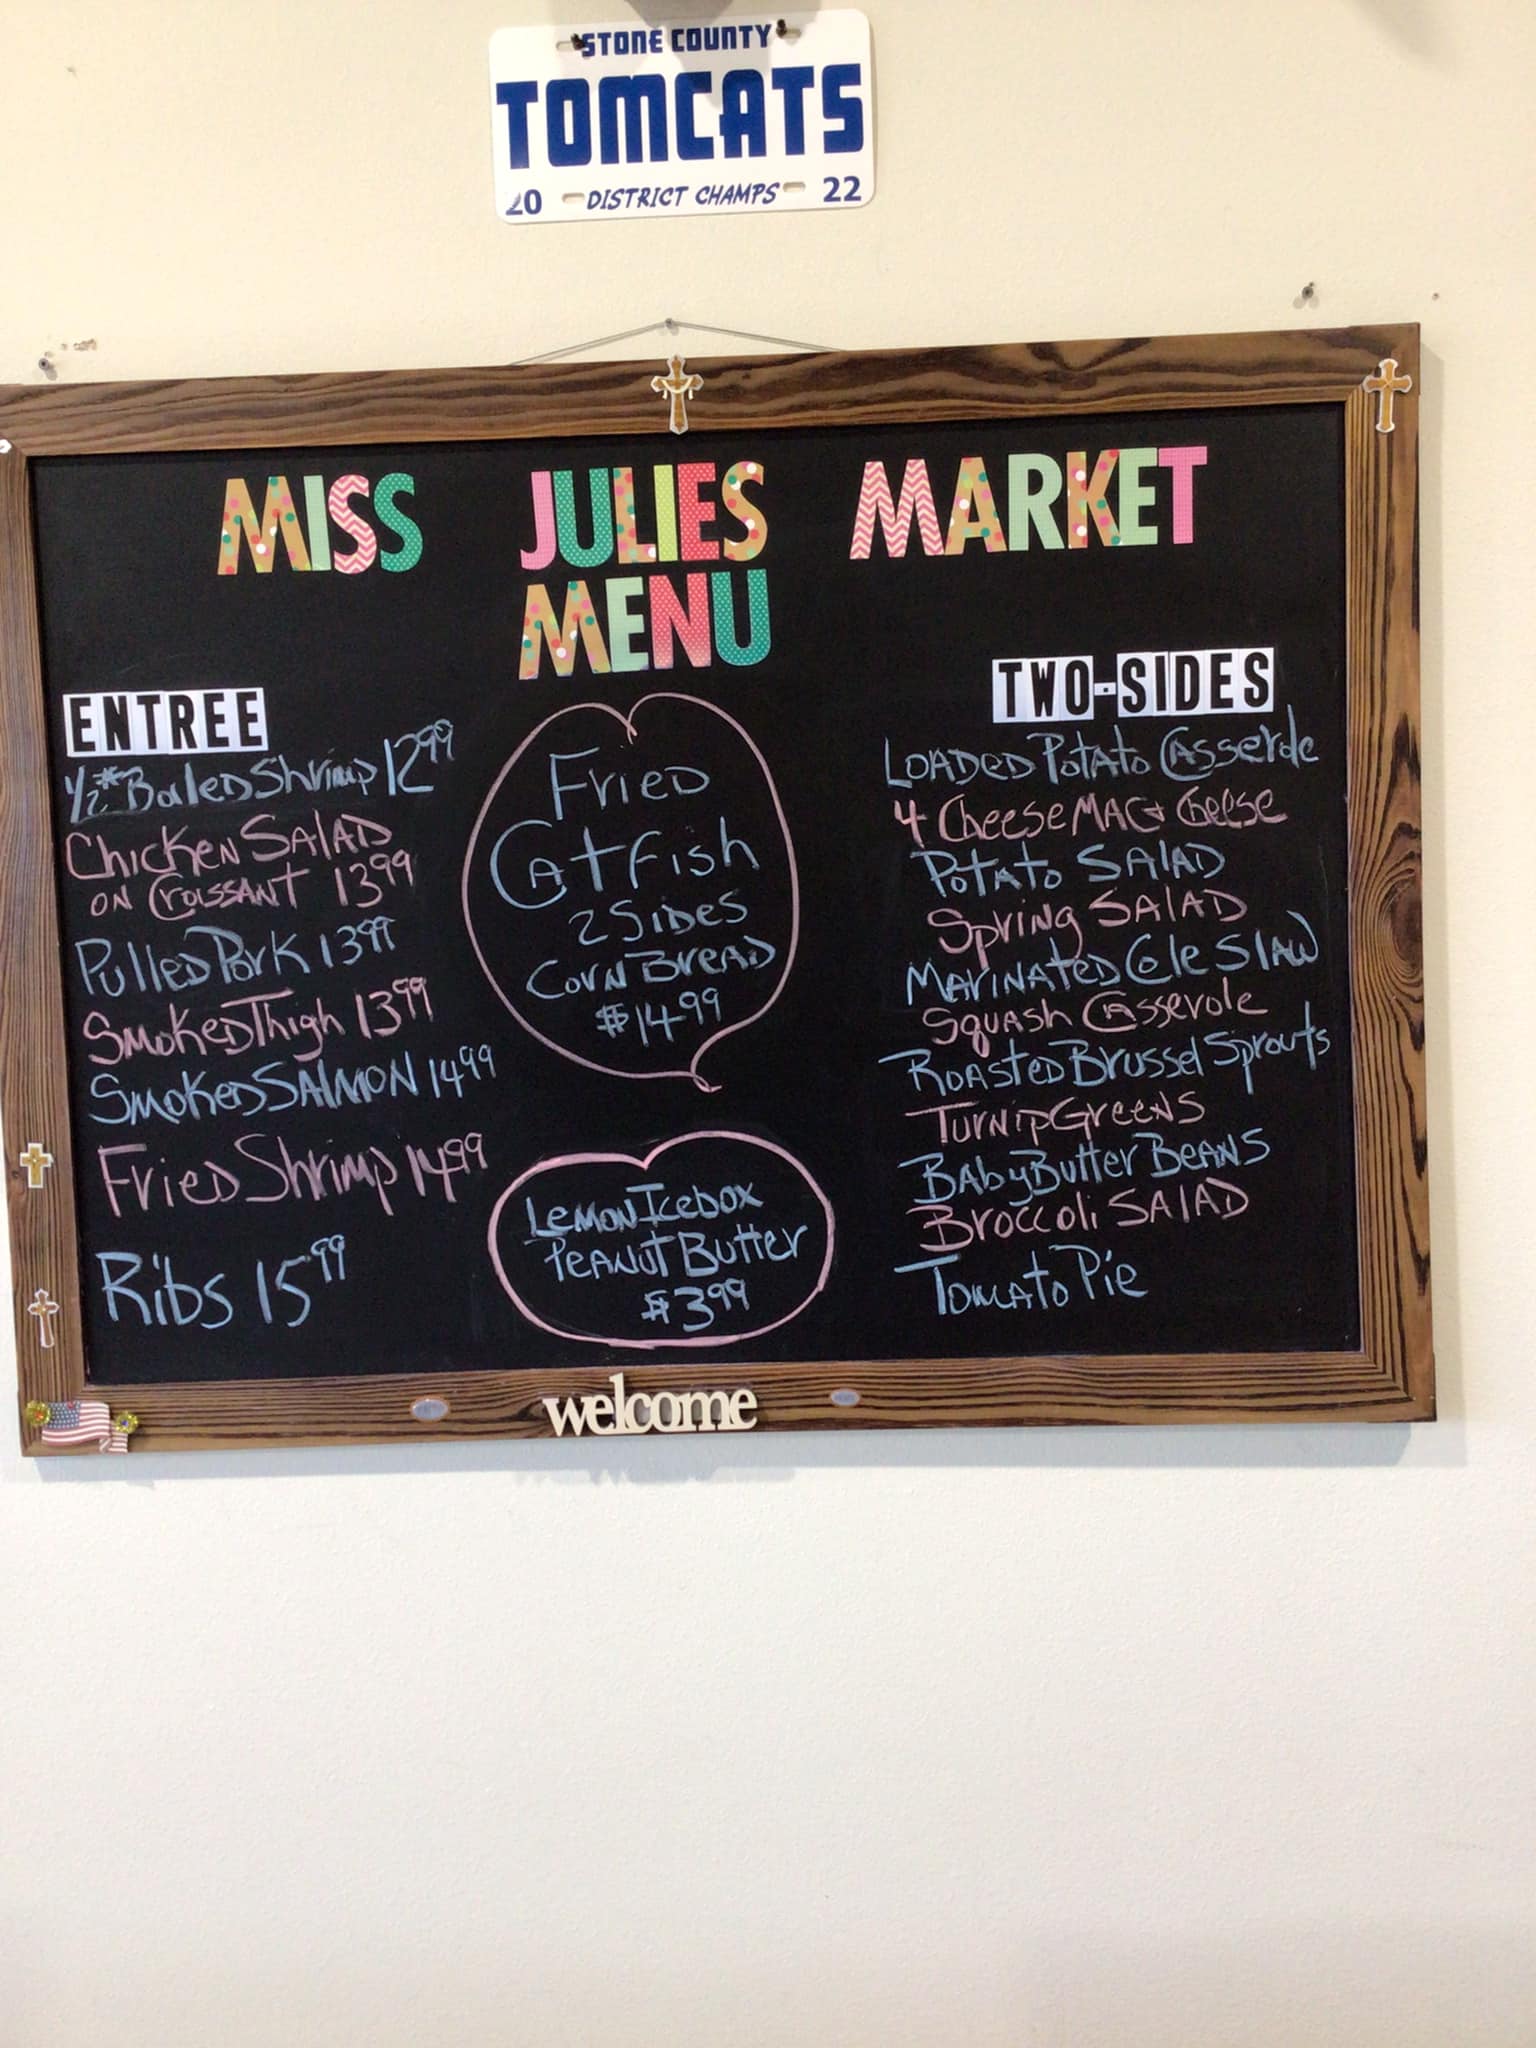 STONE COUNTY
TOMCATS
20 DISTRICT CHAMPS 22
MISS JULIES MARKET
MENU
ENTREE
1/2# Boiled Shrimp 12.99
Chicken SALAD
ON CROISSANT 13.99
Pulled Pork 13.99
Smoked Thigh 13.99
Smoked SALMON 14.99
Fried Shrimp 14.99
Ribs 15.99
Fried
Catfish
2 Sides
Corn Bread
$14.99
Lemon Icebox
Peanut Butter
$3.99
TWO-SIDES
LOADED Potato Casserole
4 Cheese MAC & Cheese
Potato SALAD
Spring SALAD
Marinated Cole Slaw
Squash Casserole
Roasted Brussel Sprouts
Turnip Greens
Baby Butter Beans
Broccoli SALAD
Tomato Pie
welcome